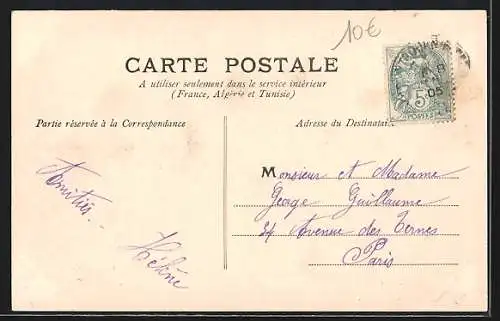 10€
CARTE POSTALE
A utiliser seulement dans le service intérieur
(France, Algérie et Tunisie)
Partie réservée à la Correspondance
Adresse du Destinataire
5
POSTES
05
Monsieur et Madame
George Guillaume
24 Avenue des Ternes
Paris
Amitiés
Hélène